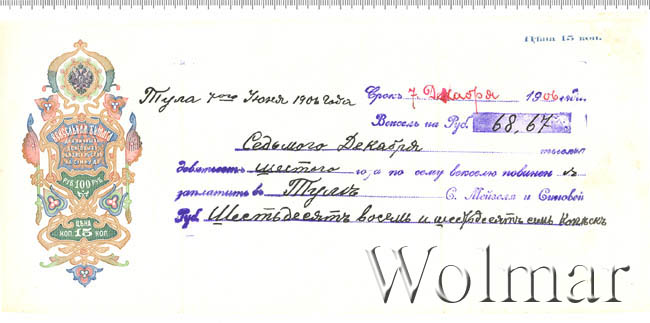 Цѣна 15 коп.
ВЕКСЕЛЬНАЯ БУМАГА
РУБ 100 РУБ
ЦѢНА
КОП 15 КОП
Тула 7го Июня 1906 года Срокъ 7 Декабря 1906 года
Вексель на Руб. 68,67
Седьмого Декабря тысяча
девятьсотъ шестого года по сему векселю повиненъ
заплатить въ Тулѣ С. Мейзеля и Сиповой
Руб. Шестьдесятъ восемь и шестьдесятъ семь копѣекъ
Wolmar